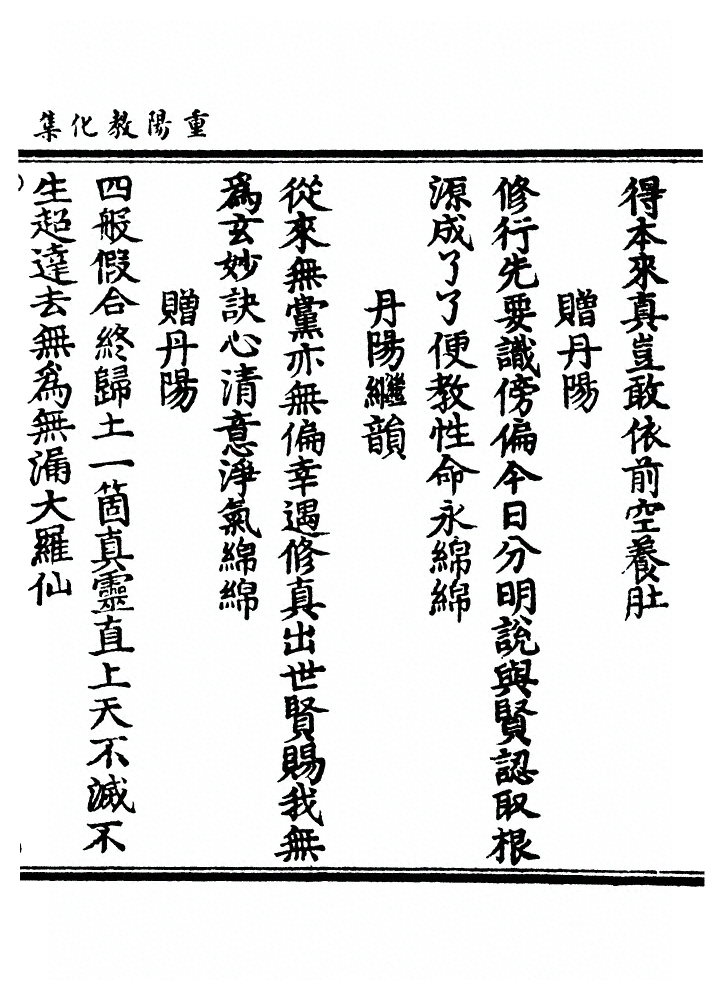 重陽教化集
得本來真豈敢依前空養肚
贈丹陽
修行先要識傍偏今日分明說與賢認取根
源成了了便教性命永綿綿
丹陽繼韻
從來無黨亦無偏幸遇修真出世賢賜我無
為玄妙訣心清意淨氣綿綿
贈丹陽
四般假合終歸土一箇真靈直上天不滅不
生超達去無為無漏大羅仙